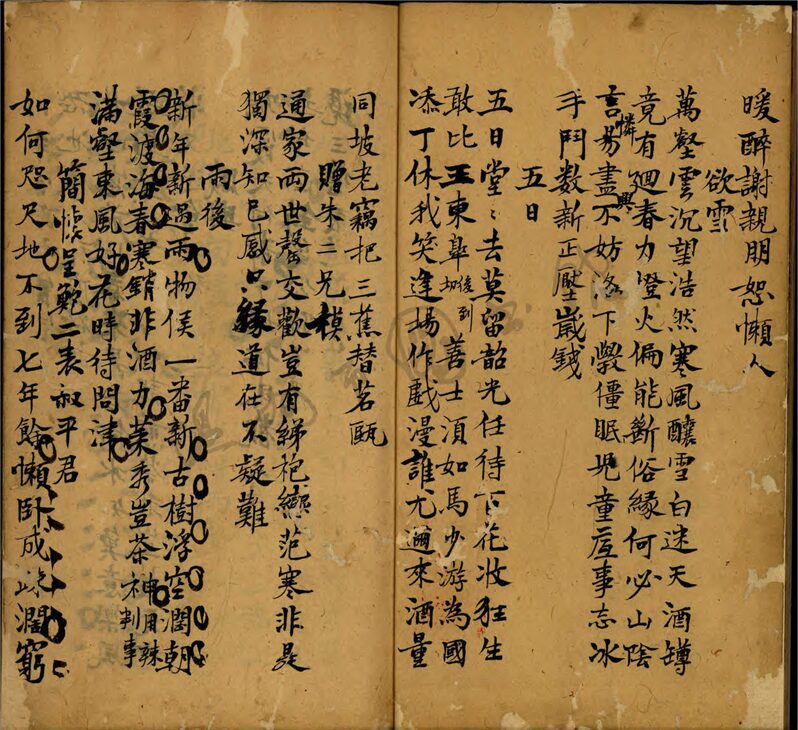 暖醉謝親朋恕懶人
欲雪
萬壑雲沉望浩然寒風釀雪白迷天酒罇
竟有廻春力燈火偏能斷俗緣何必山陰
言易盡不妨洛下學僵眠兒童度事忘冰
憐
興
手鬥數新正壓歲錢
五日
五日堂〻去莫留韶光任待下花收狂生
敢比王東皋切到善士須如馬少游為國
後
添丁休我笑逢場作戲漫誰尤邇來酒量
同坡老竊把三蕉替茗甌
贈朱二兄模
通家兩世馨交歡豈有綈袍戀范寒非是
獨深知已感只緣道在不疑難
雨後
新年新過雨物侯一番新古樹浮空潤朝
霞渡海春寒銷非酒力茉秀豈茶神用辣判事
滿壑東風好花時待問津
簡懷呈鮑二表叔平君
如何咫尺地不到七年餘懶臥成疎濶窮